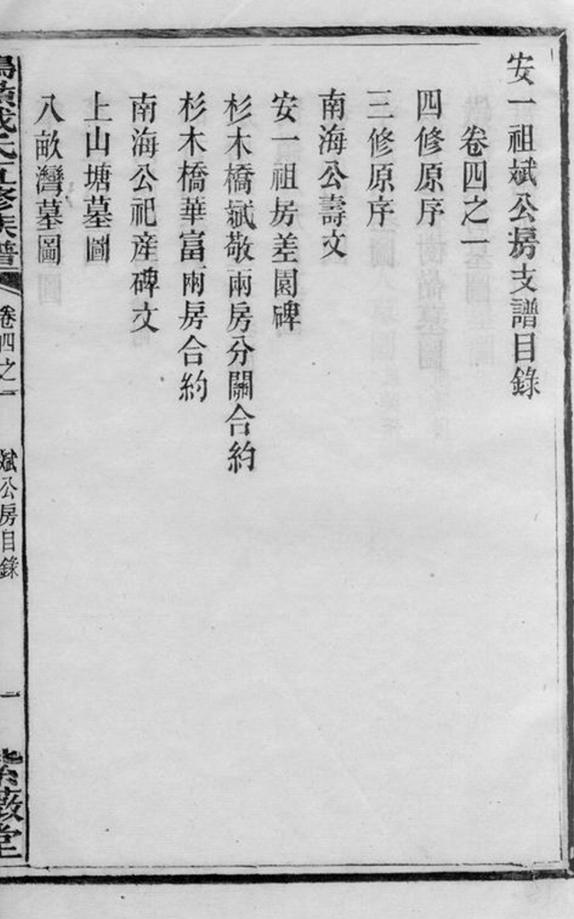 安一祖斌公房支譜目錄
卷四之一
四修原序
三修原序
南海公壽文
安一祖房差園碑
杉木橋斌敬兩房分關合約
杉木橋華富兩房合約
南海公祀産碑文
上山塘墓圖
八畝灣墓圖
氏五修族譜
卷四之一
斌公房目錄
一
紫薇堂